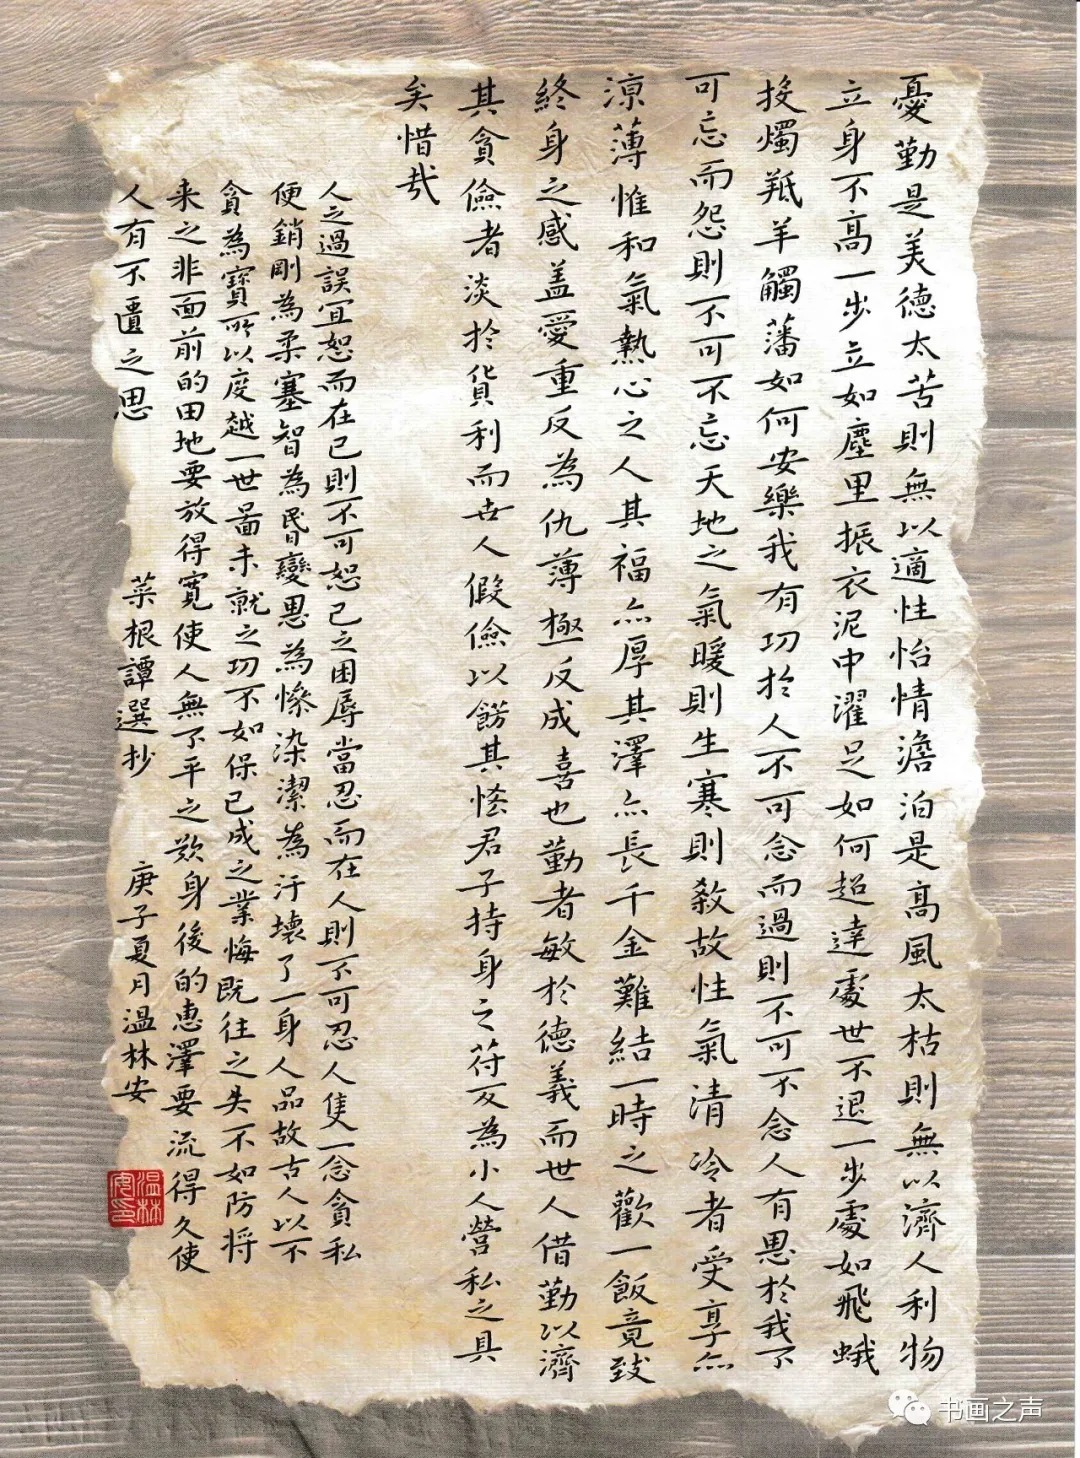 憂勤是美德太苦則無以適性怡情澹泊是高風太枯則無以濟人利物
立身不高一步立如塵里振衣泥中濯足如何超達處世不退一步處如飛蛾
投燭羝羊觸藩如何安樂我有功於人不可念而過則不可不念人有恩於我不
可忘而怨則不可不忘天地之氣暖則生寒則殺故性氣清冷者受享亦
涼薄惟和氣熱心之人其福亦厚其澤亦長千金難結一時之歡一飯竟致
終身之感盖愛重反為仇薄極反成喜也勤者敏於德義而世人借勤以濟
其貪儉者淡於貨利而世人假儉以飾其恡君子持身之符反為小人營私之具
矣惜哉
人之過誤宜恕而在己則不可恕己之困辱當忍而在人則不可忍人隻一念貪私
便銷剛為柔塞智為昏變恩為慘染潔為汙壞了一身人品故古人以不
貪為寶所以度越一世啚未就之功不如保已成之業悔既往之失不如防将
来之非面前的田地要放得寬使人無不平之歎身後的惠澤要流得久使
人有不匱之思 菜根譚選抄 庚子夏月温林安
温林安印
书画之声